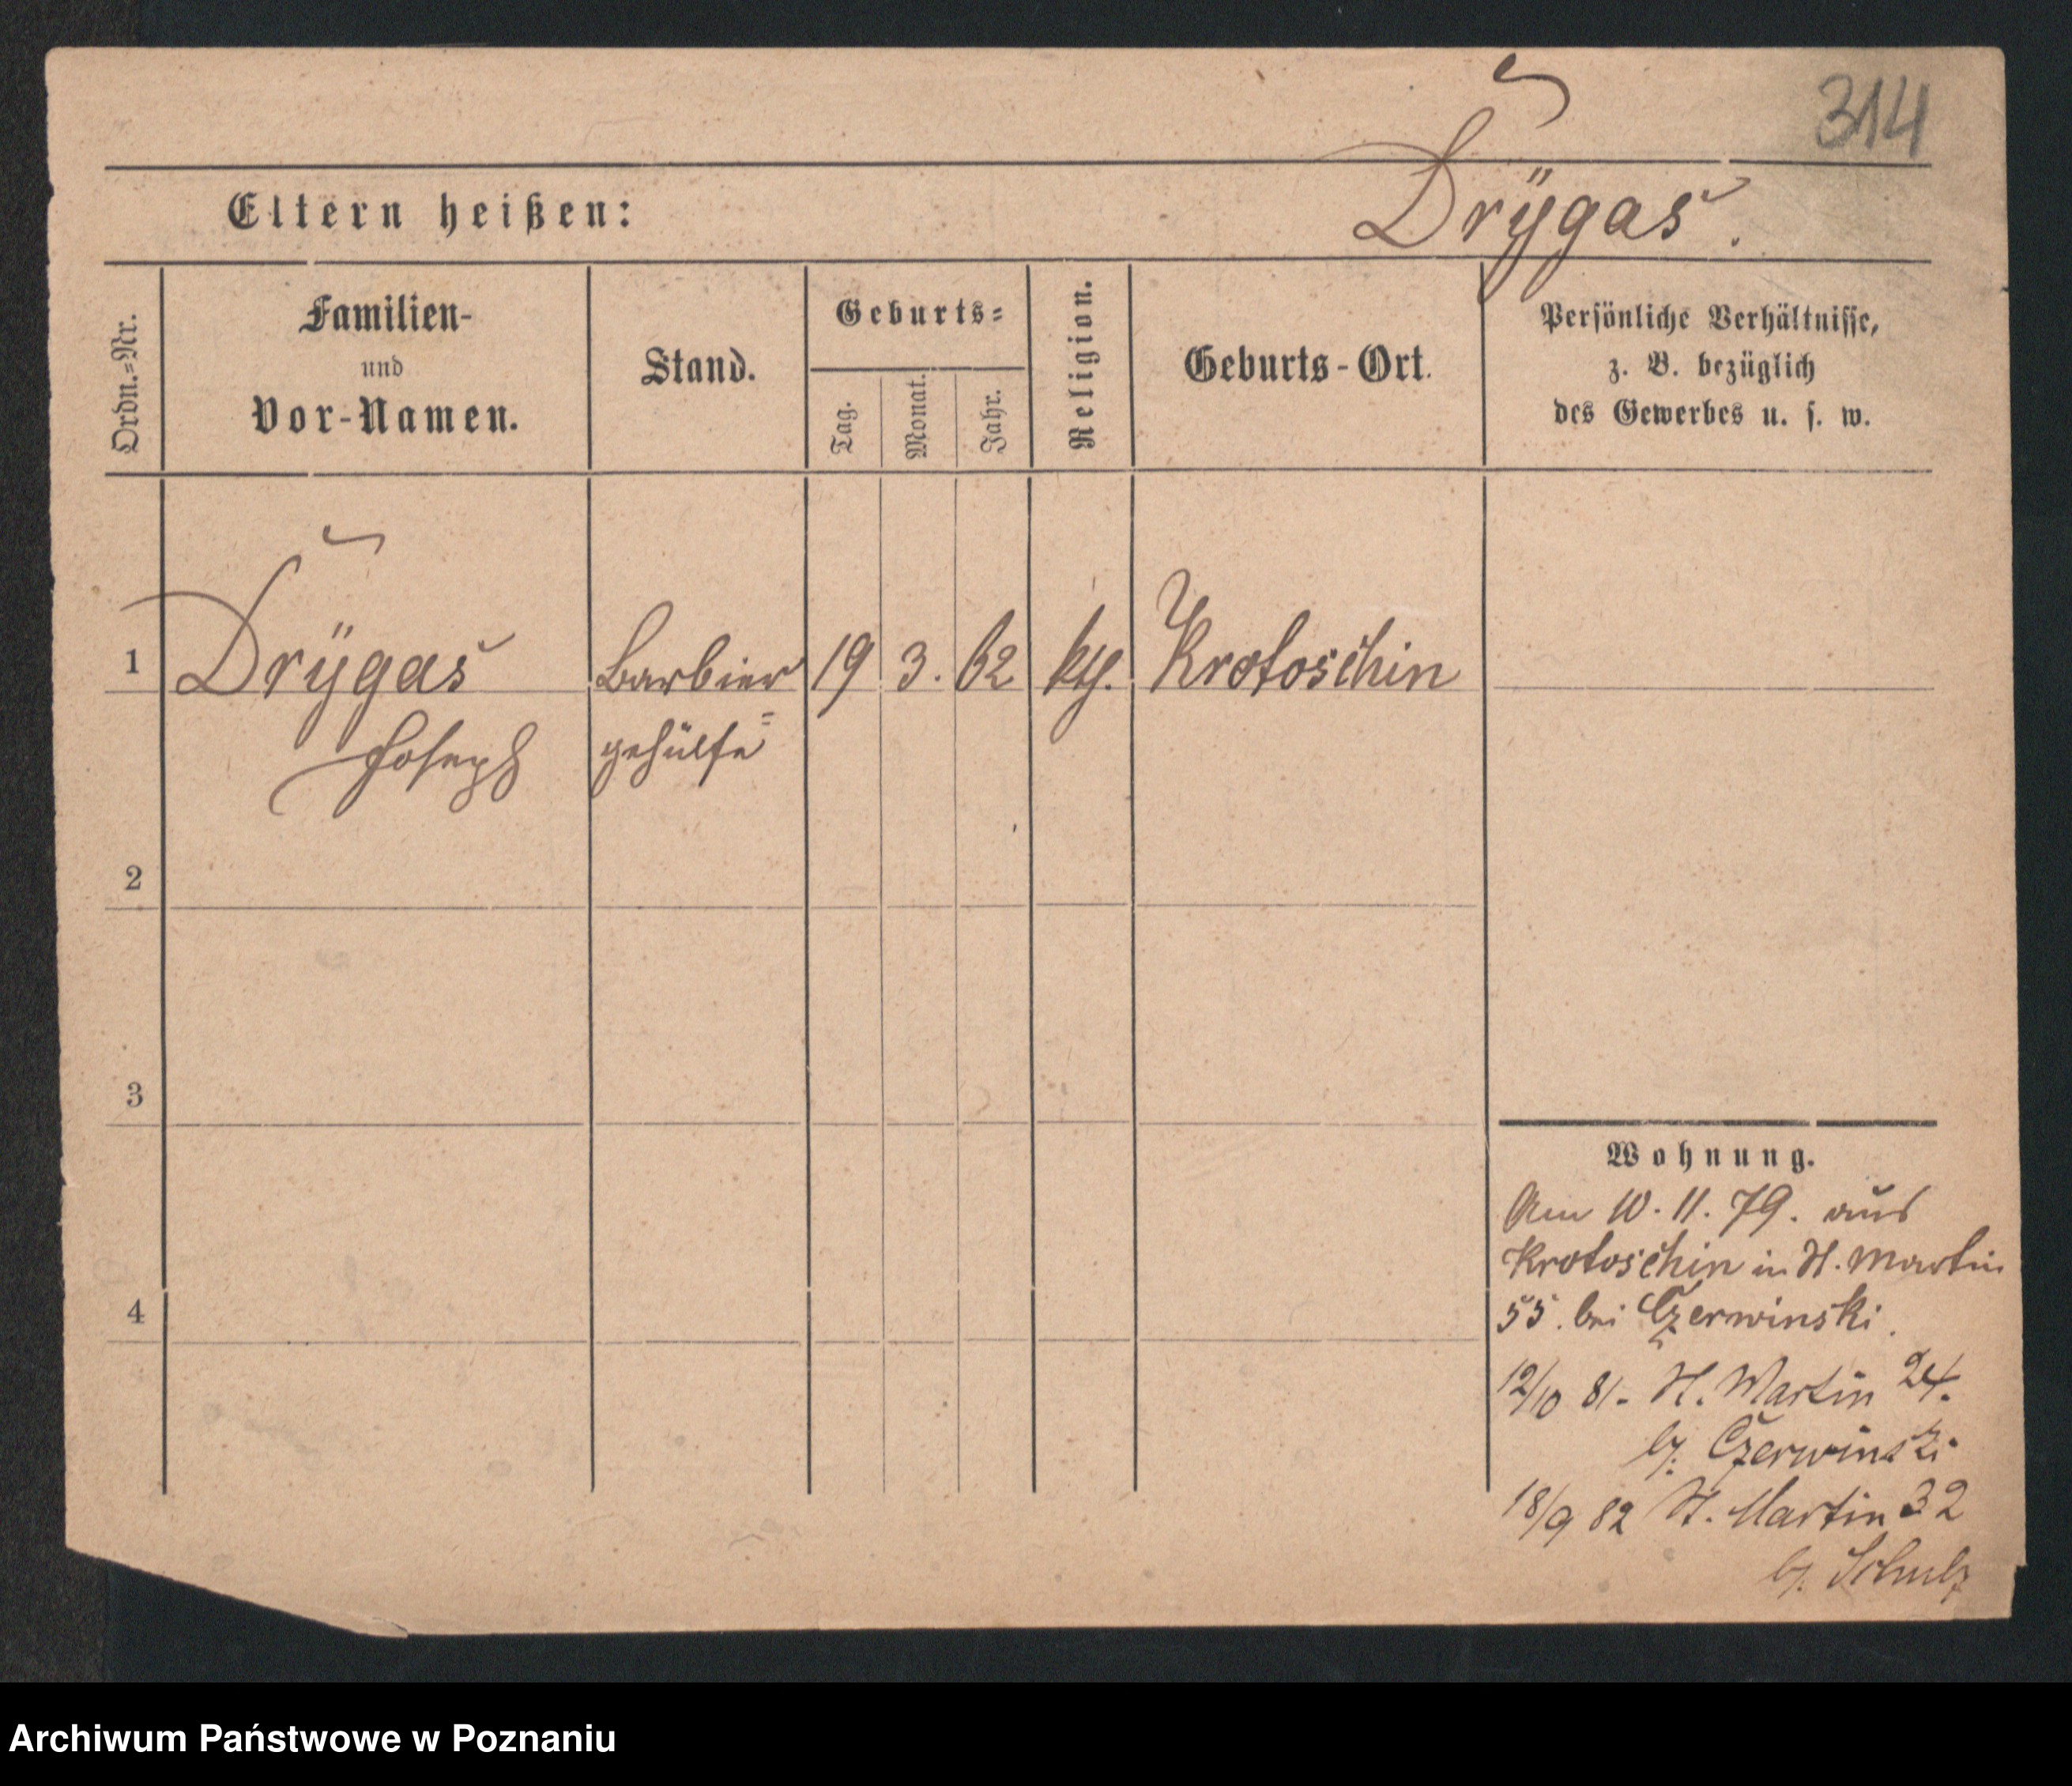 314
Eltern heißen: Drÿgas.
Ordn.-Nr.
Familien-
und
Vor-Namen.
Stand.
Geburts-
Tag.
Monat.
Jahr.
Religion.
Geburts-Ort.
Persönliche Verhältnisse,
z. B. bezüglich
des Gewerbes u. s. w.
1 Drÿgas Barbier 19 3. 62 kth. Krotoschin
Joseph gehülfe
2
3
4
Wohnung.
Am 10. 11. 79. aus
Krotoschin in St. Martin
55. bei Czerwinski.
12/10 81. St. Martin 24.
b/. Czerwinski
18/9 82 St. Martin 32
b/. Schulz
Archiwum Państwowe w Poznaniu